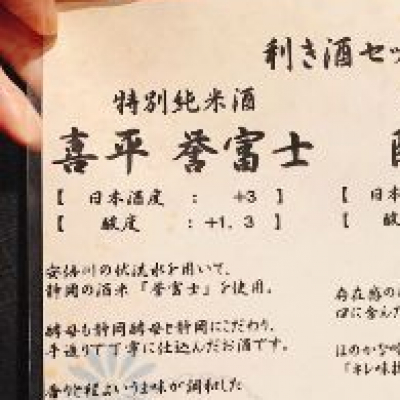 利き酒セッ
特別純米酒
喜平 誉富士
【 日本酒度 : +3 】
【 酸度 : +1.3 】
安倍川の伏流水を用いて、
静岡の酒米「誉富士」を使用。
酵母も静岡酵母と静岡にこだわり、
手造りで丁寧に仕込んだお酒です。
香りと程よいうま味が調和した
【 日本
【 酸
存在感の
口に含んだ
ほのかな
「キレ味